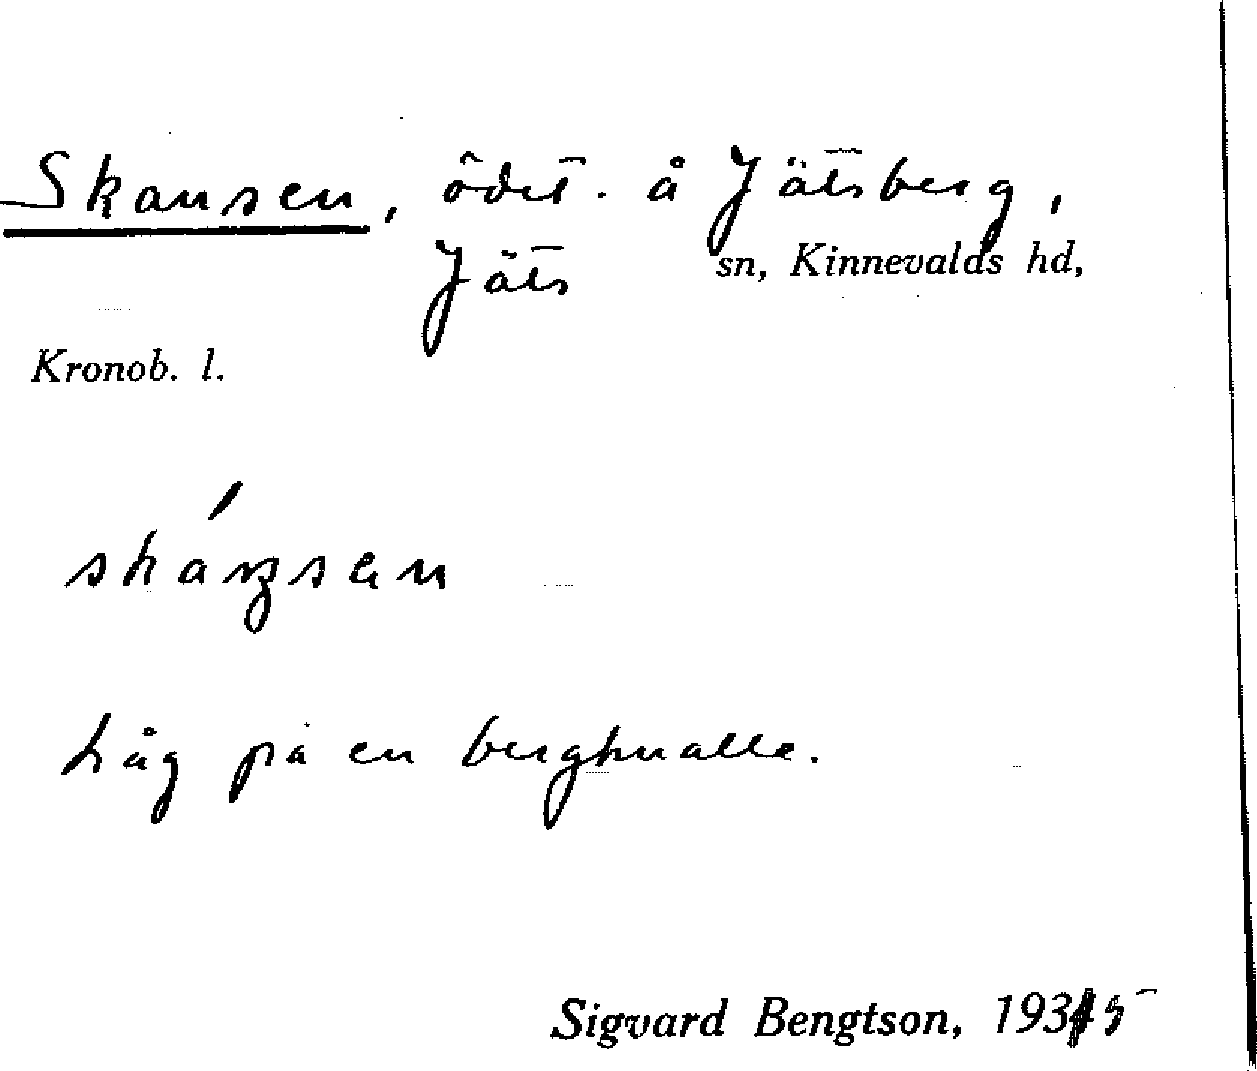 Skansen, ödet. å Jätsberg,
Jäts sn, Kinnevalds hd,
Kronob. l.
Låg på en berghnalle.
Sigvard Bengtson, 1935